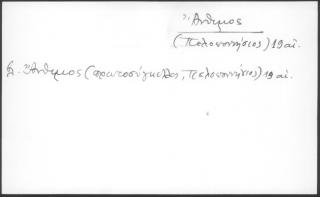 Ἄνθιμος
(Πελοποννήσιος) 19 αἰ.
βλ. Ἄνθιμος (πρωτοσύγκελλος, Πελοποννήσιος) 19 αἰ.